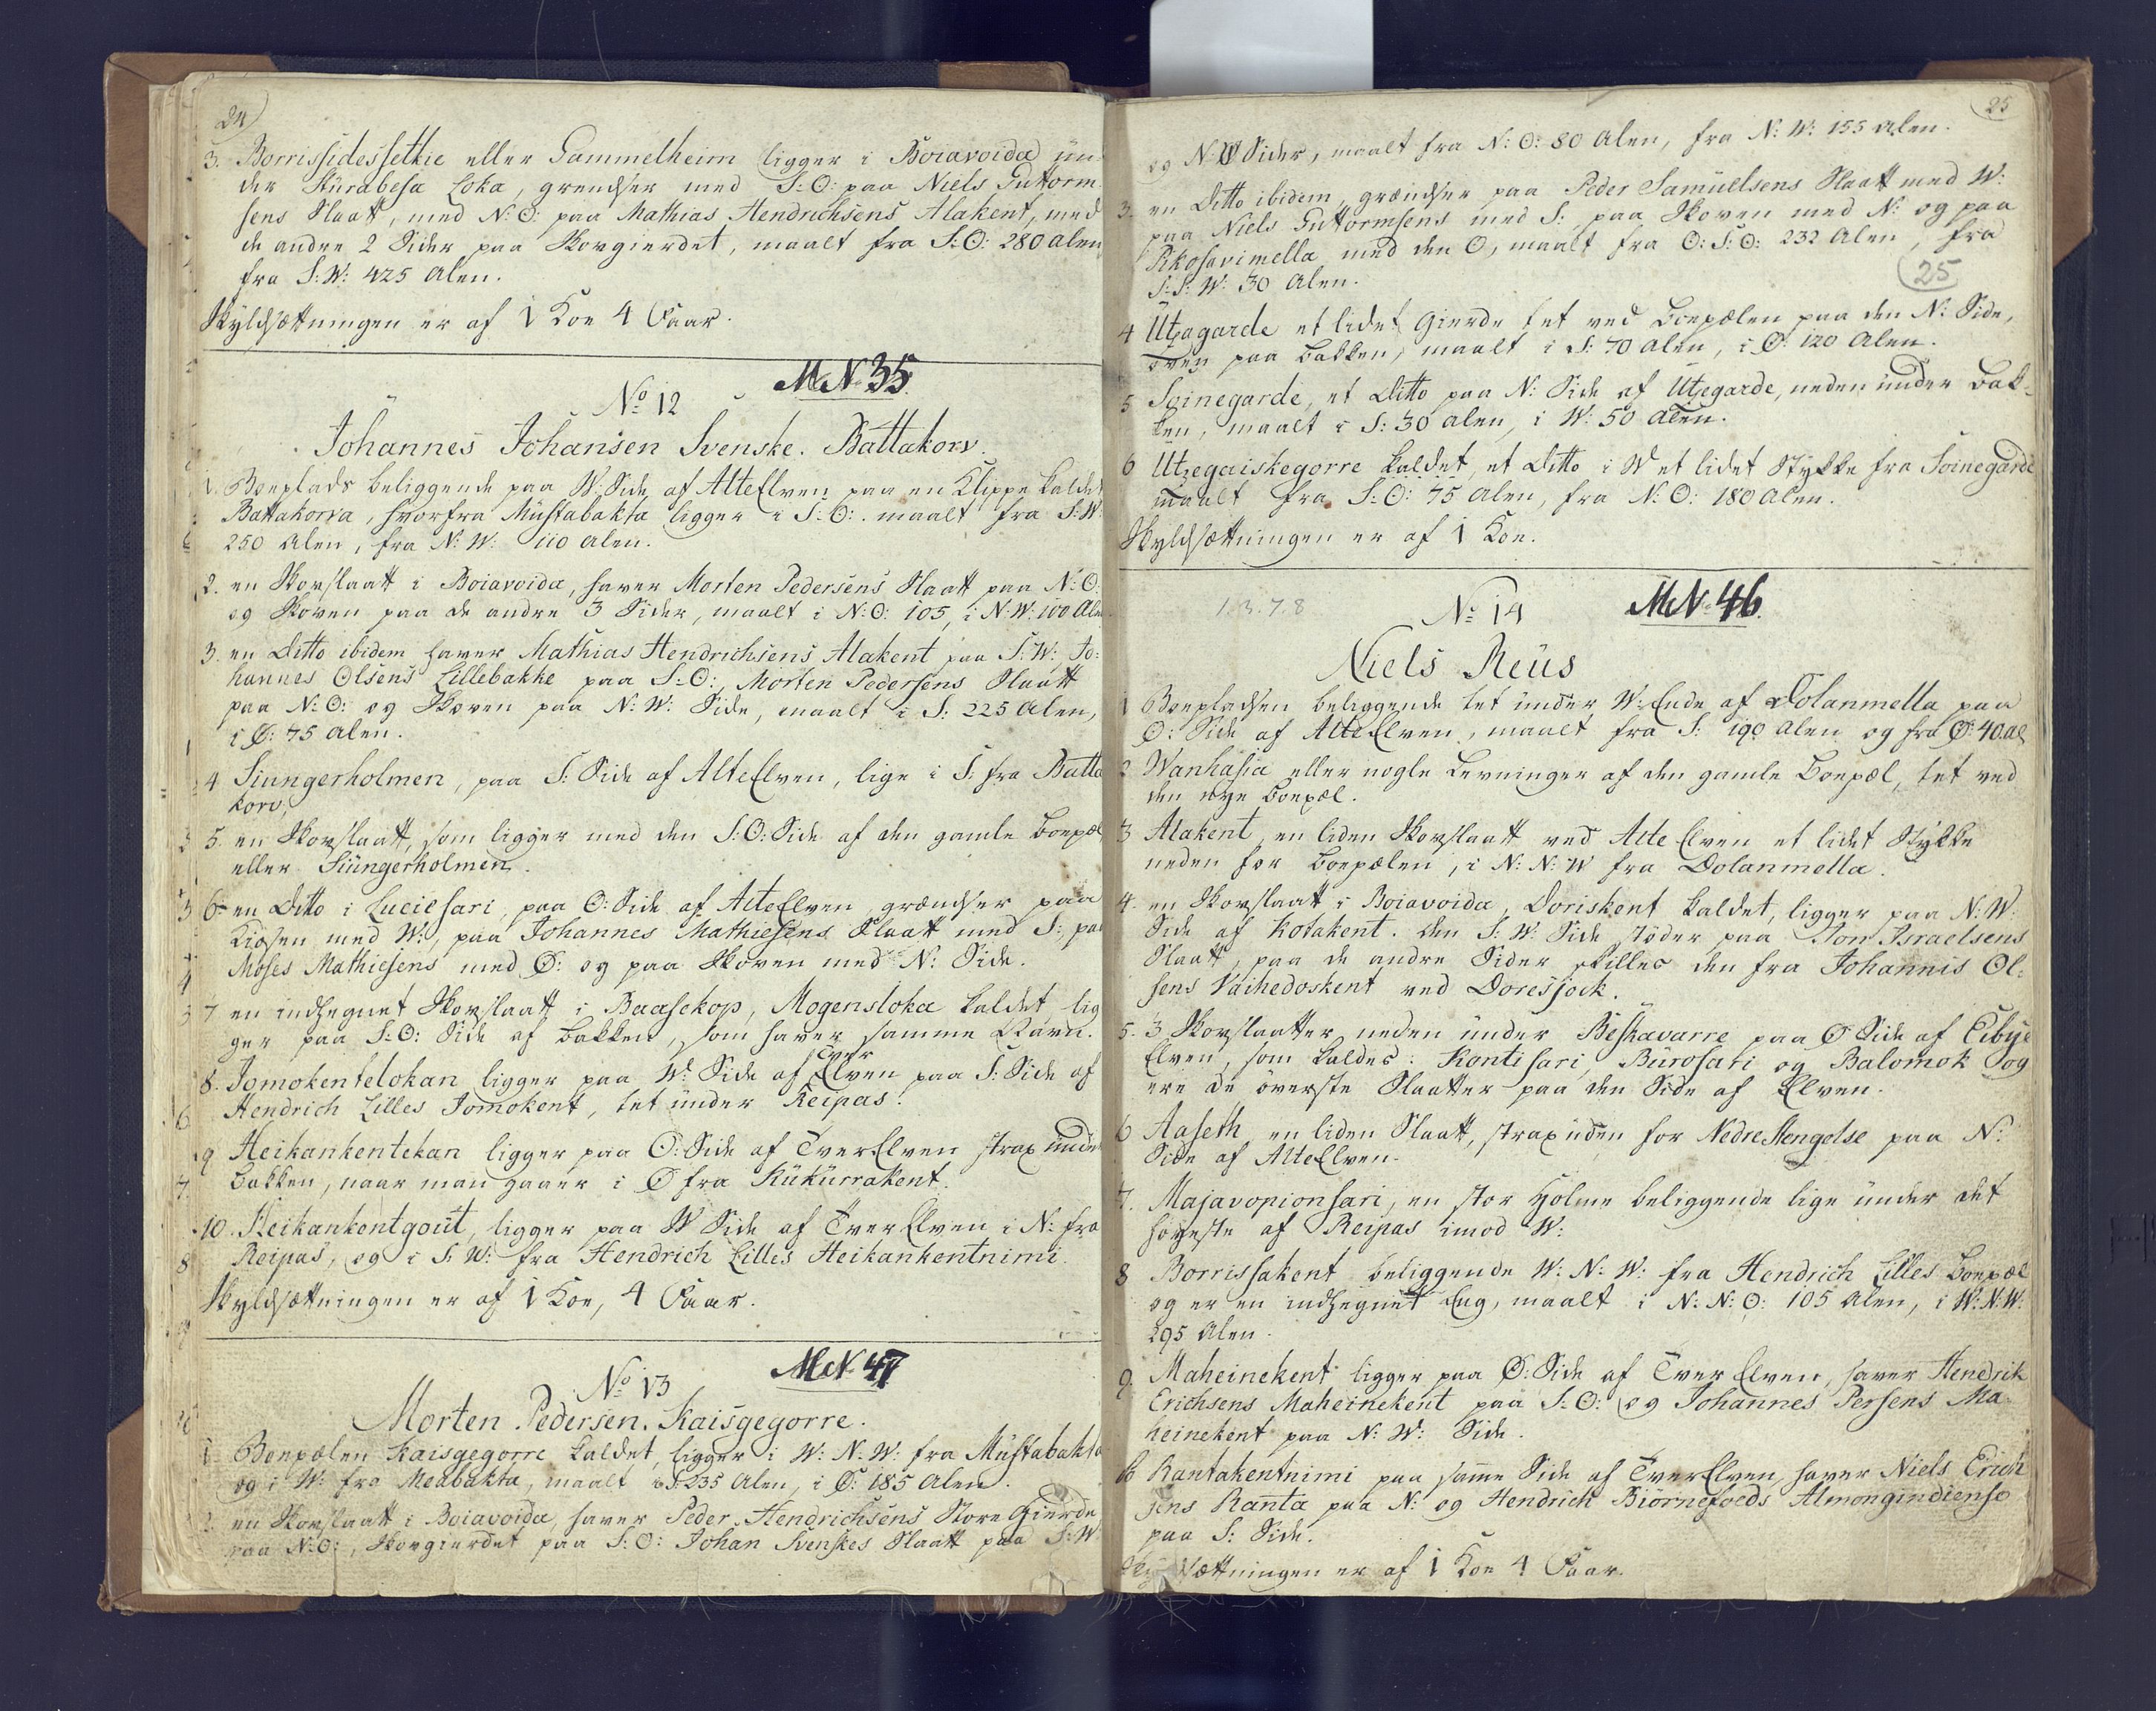 24
3. Borrissidessettie eller Gammelheim ligger i Boiavoida ün-
der Stürabesa Loka, grendser med S: O: paa Niels Guttorm-
sens Slaatt, med N: O: paa Mathias Hendrichsens Alakent, med
de andre 2 Sider paa Skovgierdet, maalt fra S: O: 280 Alen
fra S: W: 425 Alen.
Skyldsætningen er af 1 Koe 4 Faar.
MN 35.
No 12
Johannes Johansen Svenske. Battakorv.
1. Boeplads beliggende paa W: Side af AlteElven paa en Klippe kaldet
Battakorva, hvorfra Müstabakta ligger i S: O: maalt fra S: W:
250 Alen, fra N: W: 110 Alen.
2. en Skovslaatt i Boiavoida, haver Morten Pedersens Slaatt paa N: O:
og Skoven paa de andre 3 Sider, maalt i N: O: 105, i N: W: 100 Alen
3. en Ditto ibidem haver Mathias Hendrichsens Alakent paa S: W:, Jo-
hannes Olsens Lillebakke paa S: O:, Morten Pedersens Slaatt
paa N: O: og Skoven paa N: W: Side, maalt i S: 225 Alen,
i Ø: 75 Alen.
4 Siungerholmen, paa S: Side af AlteElven, lige i S: fra Batta
korv,
5. en Skovslaatt, som ligger med den S: O: Side af den gamle Boepæl
eller Siüngerholmen.
6. en Ditto i Luciesari, paa O: Side af AlteElven, grændser paa
Kiosen med W:, paa Johannes Mathiesens Slaatt med S:, paa
Moses Mathiesens med Ø: og paa Skoven med N: Side.
7 en indhegnet Skovslaatt i Baasekop, Mogensloka kaldet, lig
ger paa S: O: Side af Bakken, som haver samme Navn.
8. Jomokentelokan ligger paa W: Side af Tver Elven paa S: Side af
Hendrich Lilles Jomokent, tet ünder Reipas.
9 Heikankentekan ligger paa O: Side af TverElven strax ünder
Bakken, naar man gaaer i Ø fra Kükürrakent.
10. Heikankentgoüt, ligger paa W Side af TverElven i N: fra
Reipas, og i S: W: fra Hendrich Lilles Heikankentnimi.
Skyldsætningen er af 1 Koe, 4 Faar.
MN 47
No 13
Morten Pedersen. Kaisgegorre.
1. Boepælen Kaisgegorre kaldet, ligger i W: N: W: fra Müstabakta
og i W: fra Meabakta, maalt i S: 235 Alen, i Ø: 185 Alen.
2. en Skovslaatt i Boiavoida, haver Peder Hendrichsens Store Gierde
paa N: O:, Skovgierdet paa S: O: Johan Svenskes Slaatt paa S: W
25
og N: W Sider, maalt fra N: O: 80 Alen, fra N: W: 155 Alen.
3. en Ditto ibidem, grændser paa Peder Samüelsens Slaatt med W:
paa Niels Guttormsens med S: paa Skoven med N: og paa
Rkosavimella med den O, maalt fra O: S: O: 232 Alen, fra
S: S: W: 30 Alen.
25
4 Utzagarde et lidet Gierde tet ved Boepælen paa den N: Side,
oven paa Bakken, maalt i S: 70 Alen, i Ø: 120 Alen.
5 Soinegarde, et Ditto paa N: Side af Utzegarde, neden ünder Bak-
ken, maalt i S: 30 Alen, i W: 50 Alen.
6 Utzegaiskegorre kaldet, et Ditto i W et lidet Stykke fra Soinegarde
maalt fra S: O: 75 Alen, fra N: O: 180 Alen.
Skyldsætningen er af 1 Koe.
1. 3. 7. 8
MN 46.
No 14
Niels Reüs
1 Boepladsen beliggende tet ünder W: Ende af Dolanmella paa
O: Side af AlteElven, maalt fra S: 190 Alen og fra Ø: 40 Al
2 Wanhasia eller nogle Levninger af den gamle Boepæl, tet ved
den nye Boepæl.
3 Alakent, en liden Skovslaatt ved Alte Elven et lidet Stykke
neden for Boepælen, i N: N: W fra Dolanmella.
4. en Skovslaatt i Boiavoida, Doriskent kaldet, ligger paa N: W:
Side af Kotakent. den S: W: Side støder paa Jon Israelsens
Slaatt, paa de andre Sider skilles den fra Johannis Ol-
sens Vaihedoskent ved Doresjock.
5. 3 Skovslaatter neden ünder Beskavarre paa Ø Side af Eibye
Elven, som kaldes: Kontisari, Bürosari og Balomok og
ere de överste Slaatter paa den Side af Elven.
6 Aaseth, en liden Slaatt, strax uden for NedreStengelse paa N:
Side af AlteElven.
7. Majavopionsari, en stor Holme beliggende lige ünder det
høyeste af Reipas imod W:
8 Borrissakent beliggende W: N: W: fra Hendrich Lilles Boepæl
og er en indhegnet Eng, maalt i N: N: O: 105 Alen, i W: N: W:
295 Alen.
9 Maheinekent ligger paa Ø: Side af Tver Elven, haver Hendrik
Erichsens Maheinekent paa S: O: og Johannes Persens Ma-
heinekent paa N: W: Side.
10 Rantakentnimi paa samme Side af TverElven, haver Niels Erich
sens Ranta paa N: og Hendrich Biørnefoeds Almongindienso
paa S: Side.
Skyldsætningen er af 1 Koe 4 Faar.